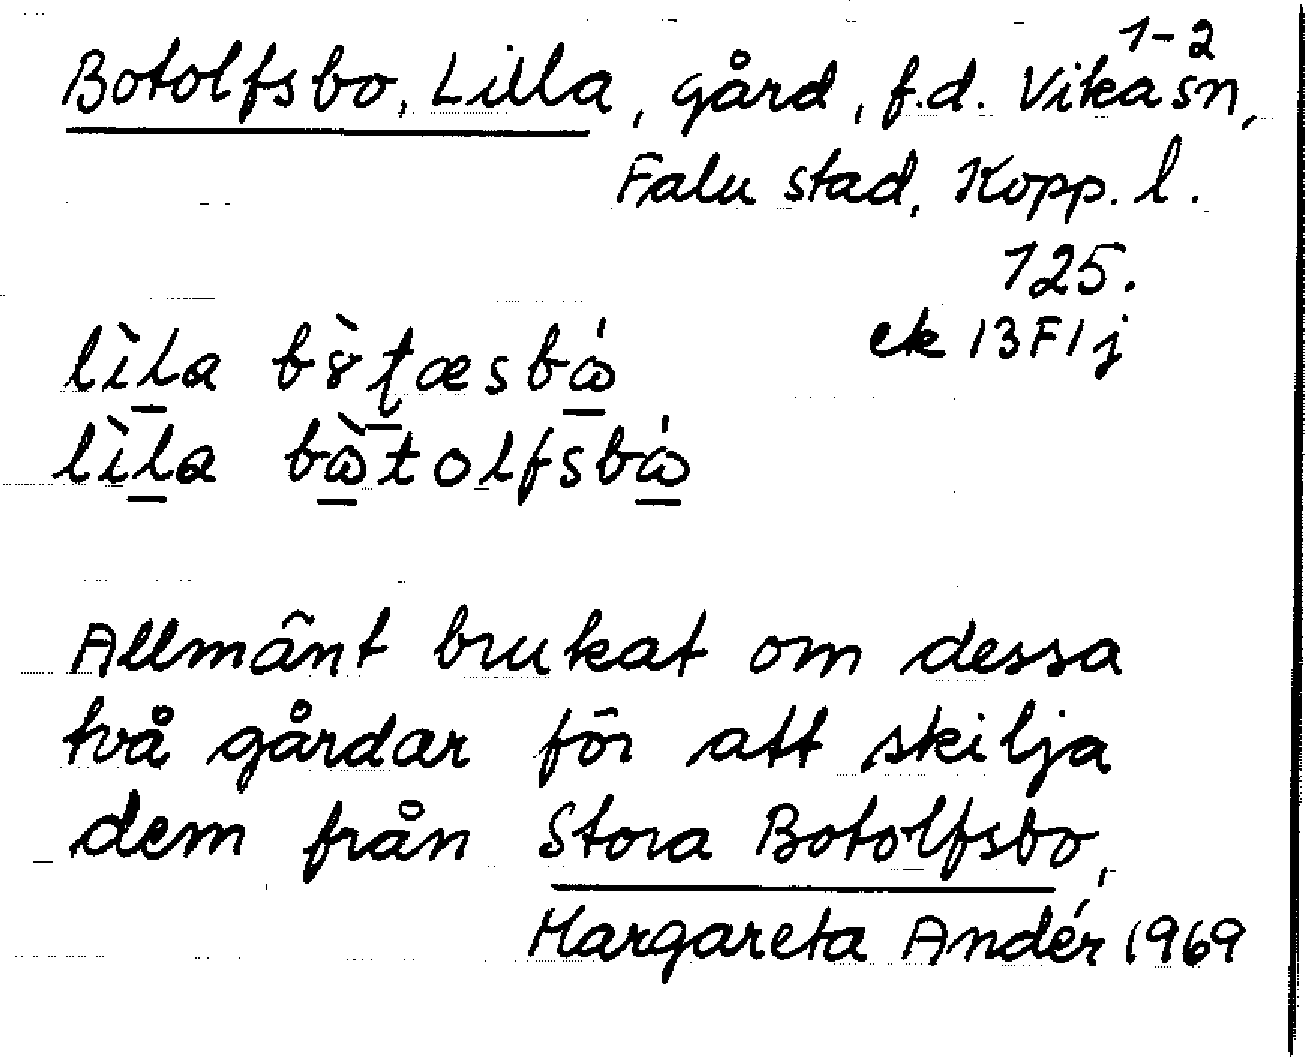 Botolfsbo, Lilla, gård, f.d. Vika sn, 1-2
Falu stad, Kopp. l.
125.
ek 13F1j
lìla
lìla
Allmänt brukat om dessa
två gårdar för att skilja
dem från Stora Botolfsbo,
Margareta Andér 1969